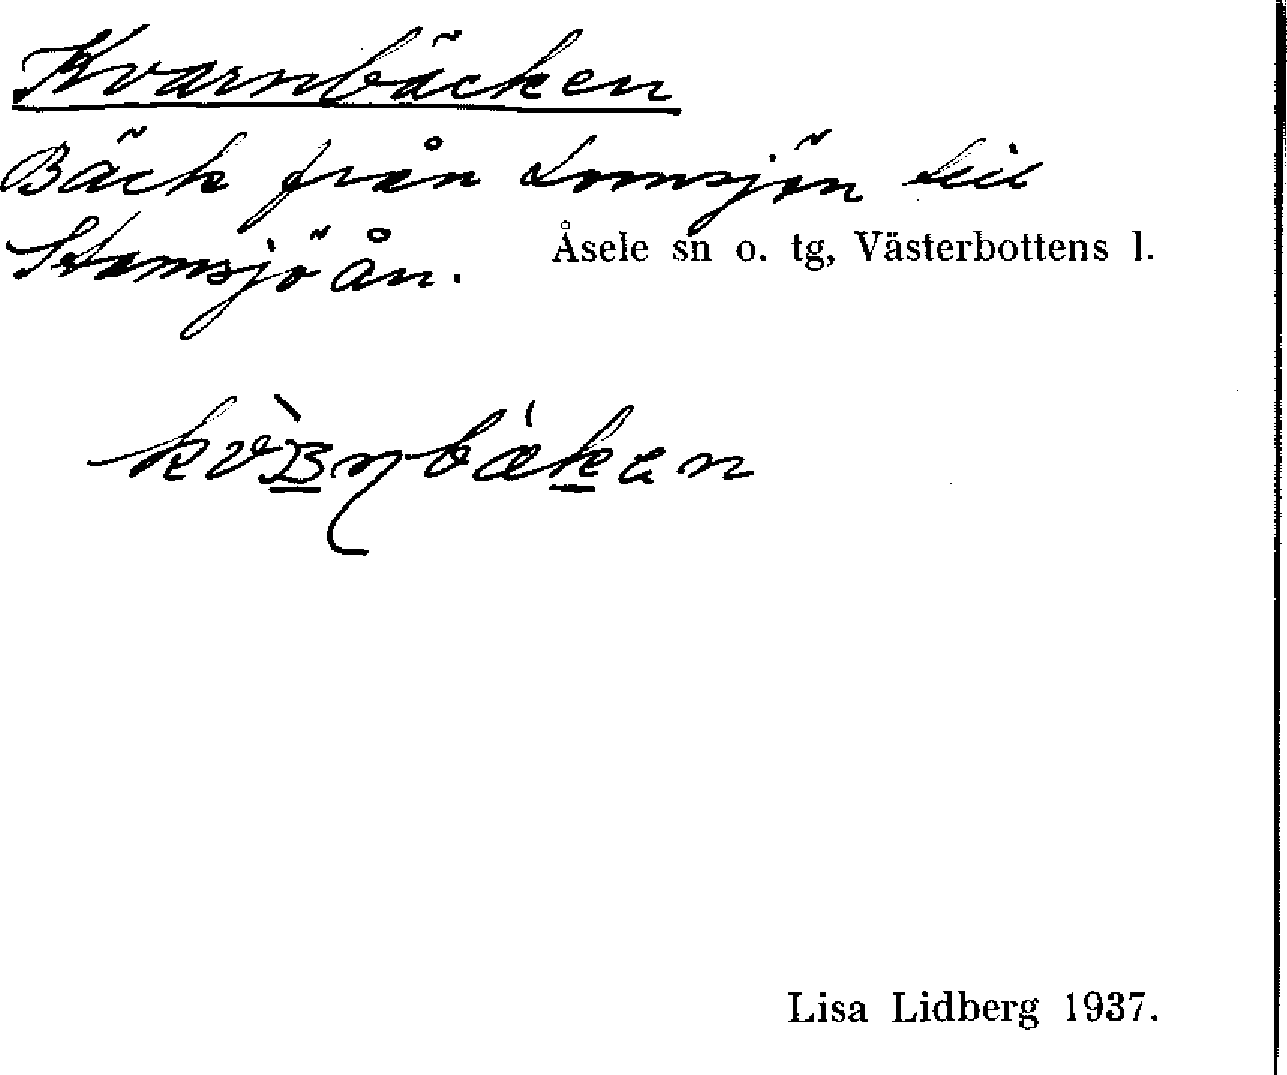 Kvarnbäcken
Bäck från Lomsjön till
Stamsjöån.
Åsele sn o. tg, Västerbottens l.
Lisa Lidberg 1937.